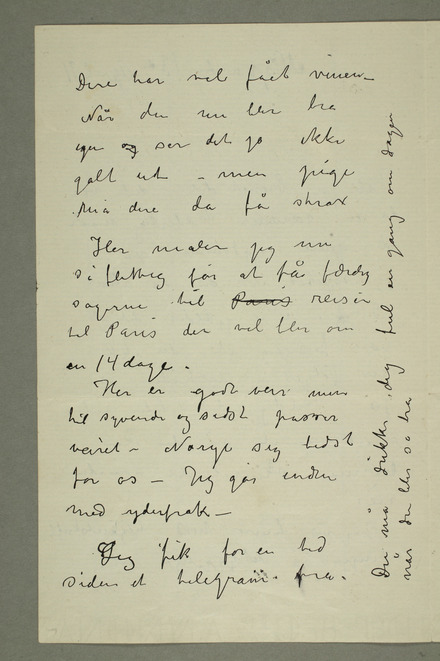 Dere har vel fået vinen –
Når du nu blir bra
igen og ser det jo ikke
galt ut – men pige
må dere da få strax
Her maler jeg nu
så flittig for at få færdig
sagerne til Paris reisen
til Paris der vel blir om
en 14 dage.
Her er godt veir men
til syvende og sidst passer
veiret – Norge sig bedst
for os – Jeg går enden
med yderfrak –
Jeg fik for en tid
siden et telegram fra.
Du må drikke dig ful en gang om dagen
når du blir så bra